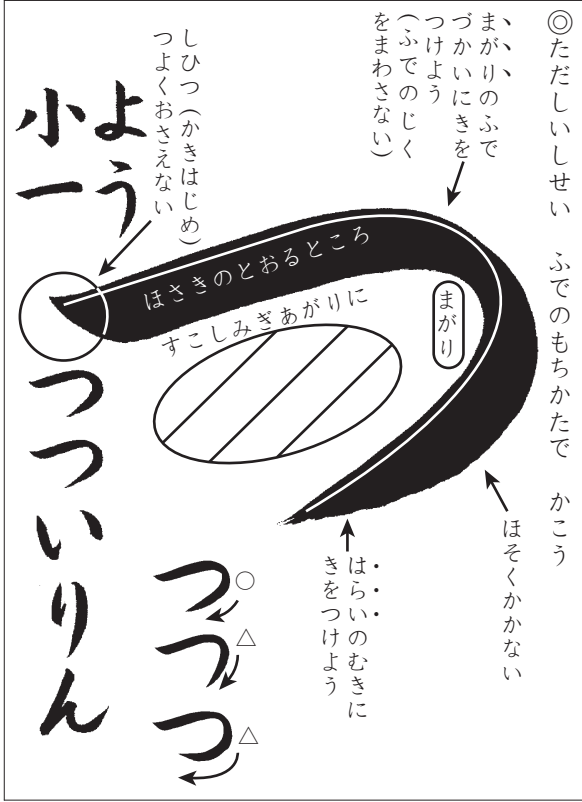 ◎ただしいしせい　ふでのもちかたで　かこう
まがりのふで
づかいにきを
つけよう
（ふでのじく
をまわさない）
しひつ（かきはじめ）
つよくおさえない
ほさきのとおるところ
すこしみぎあがりに
まがり
ほそくかかない
はらいのむきに
きをつけよう
○
つ
△
つ
△
つ
よう
小一
つついりん